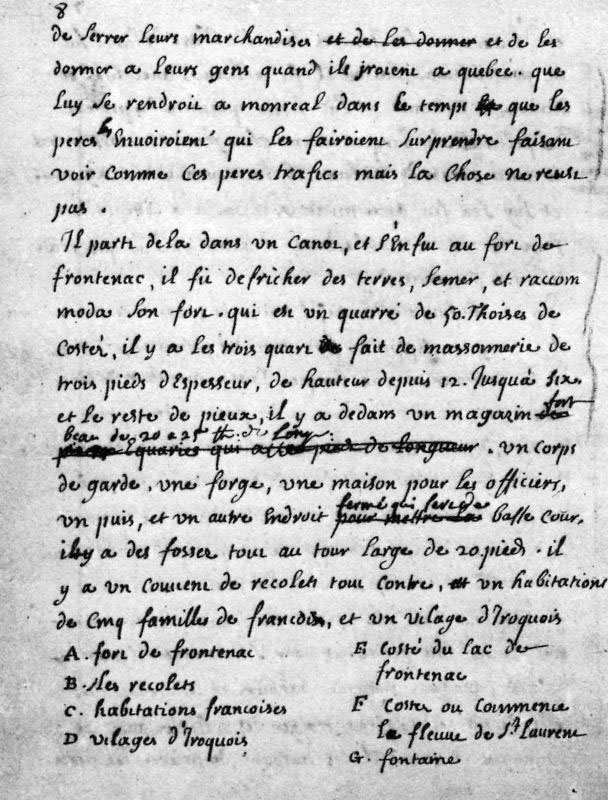 8
de serrer leurs marchandises et de les donner et de les
donner a leurs gens quand ils jroient a quebec. que
luy se rendroit a monreal dans le temps que les
peres les Envoiroient qui les fairoient surprendre faisant
voir comme Ces peres trafics mais la Chose ne reusit
pas.
Il parti dela dans un Canot, et s'Enfut au fort de
frontenac, il fit defricher des terres, semer, et raccom
moda son fort. qui est un quarré de 50. Thoises de
Costez, il y a les trois quart fait de massonnerie de
trois pieds d'Espesseur, de hauteur depuis 12. Jusqua six.
et le reste de pieux, il y a dedans un magazin de fort
beau de 20 a 25 th: de Long.
Equaries qui a pied de longueur. un corps
de garde, une forge, une maison pour les officiers,
fermé qui sert de
un puis, et un autre Endroit pour mettre la basse cour.
il y a des fossez tout au tour large de 20 pieds. il
y a un Couvent de recolets tout contre, et un habitations
de Cinq familles de francois, et un vilage d'Iroquois
A. fort de frontenac
B. les recolets
C. habitations francoises
D vilages d'Iroquois
E Costé du lac de
frontenac
F Costez ou Commence
le fleuve de St. Laurent
G. fontaine